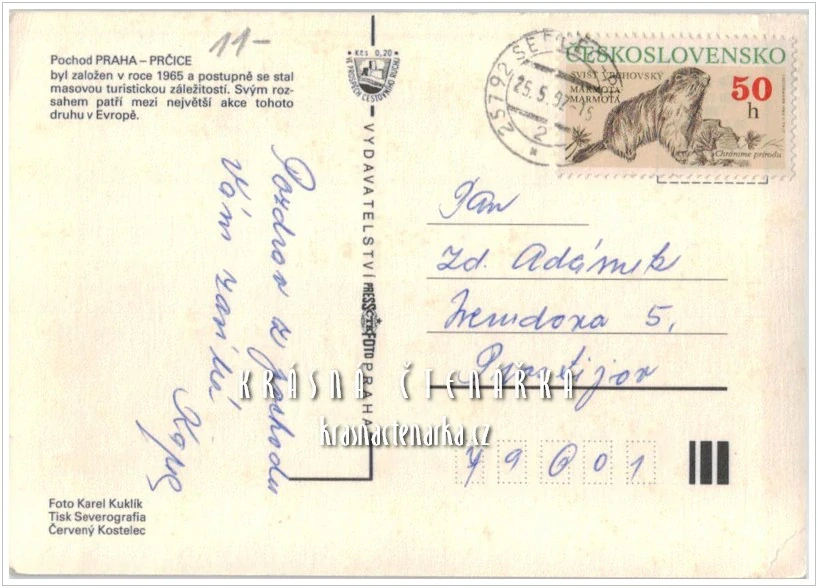 11-
Pochod PRAHA – PRČICE
byl založen v roce 1965 a postupně se stal
masovou turistickou záležitostí. Svým roz-
sahem patří mezi největší akce tohoto
druhu v Evropě.
Kčs 0,20
VE PROSPĚCH CESTOVNÍHO RUCHU
VYDAVATELSTVÍ PRESSFOTO PRAHA
ČTK
25792
25.5.92-15
2
ČESKOSLOVENSKO
SVIŠŤ VRCHOVSKÝ
MARMOTA
MARMOTA
50
h
Chráníme přírodu
Pozdrav z pochodu
Vám
Pan
Zd. Adámek
5,
Prostějov
79601
KRÁSNÁ ČTENÁŘKA
krasnactenarka.cz
Foto Karel Kuklík
Tisk Severografia
Červený Kostelec